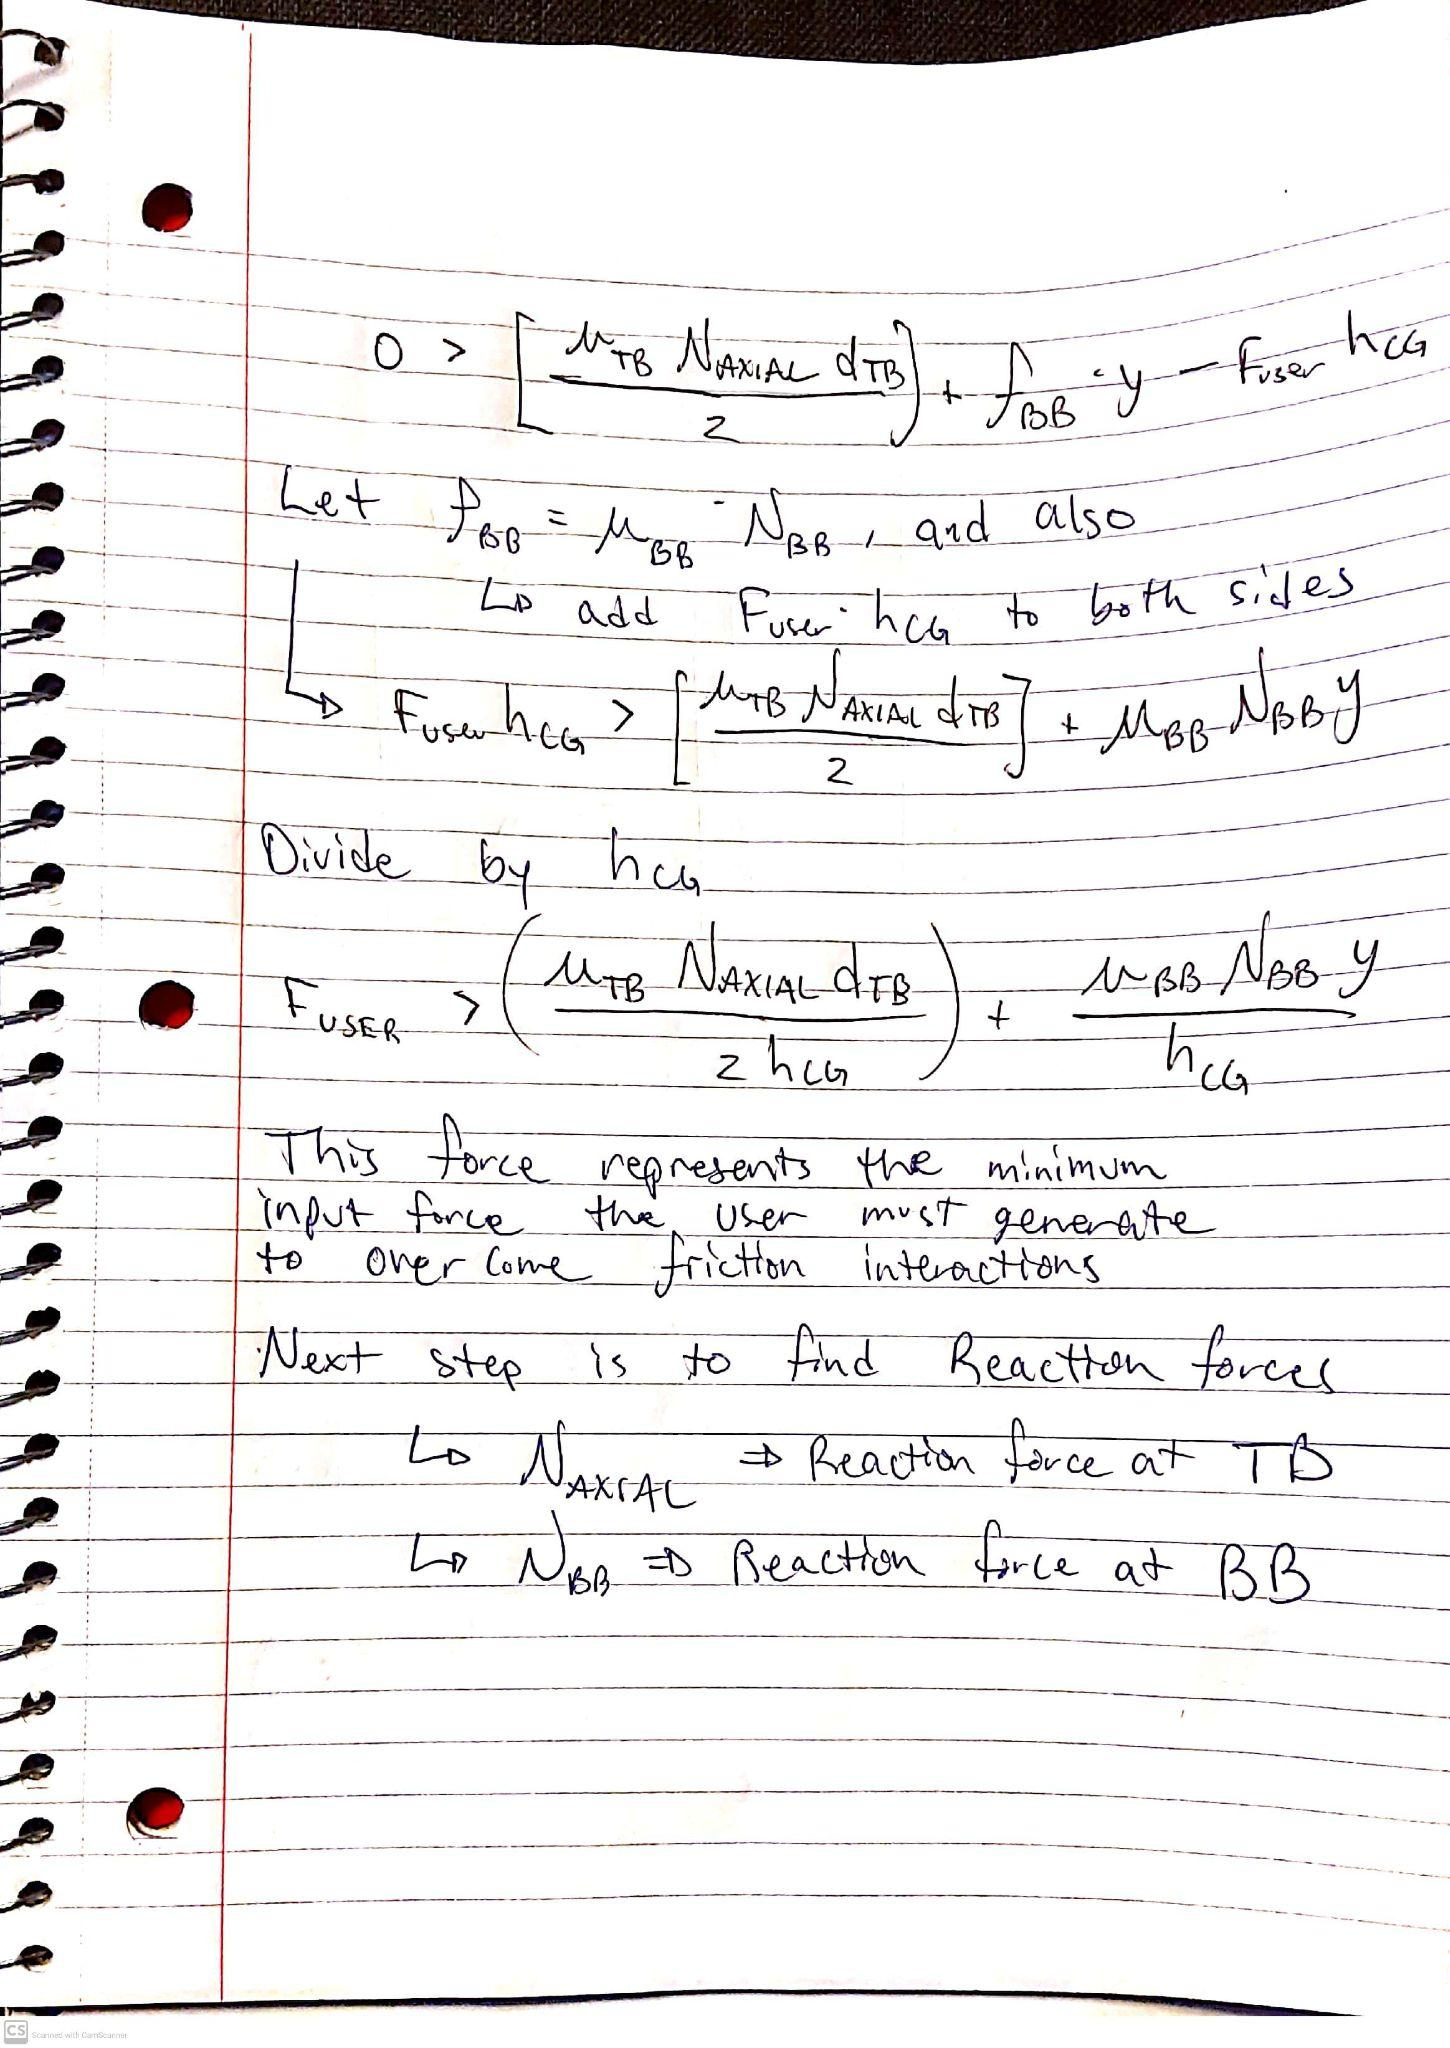 0 > [μTB NAXIAL dTB / 2] + fBB · y - Fuser hCG
Let fBB = μBB · NBB, and also
↳ add Fuser · hCG to both sides
↳ Fuser hCG > [μTB NAXIAL dTB / 2] + μBB NBB y
Divide by hCG
FUSER > (μTB NAXIAL dTB / 2 hCG) + μBB NBB y / hCG
This force represents the minimum
input force the user must generate
to overcome friction interactions
Next step is to find Reaction forces
↳ NAXIAL ⇒ Reaction force at TB
↳ NBB ⇒ Reaction force at BB
CS Scanned with CamScanner